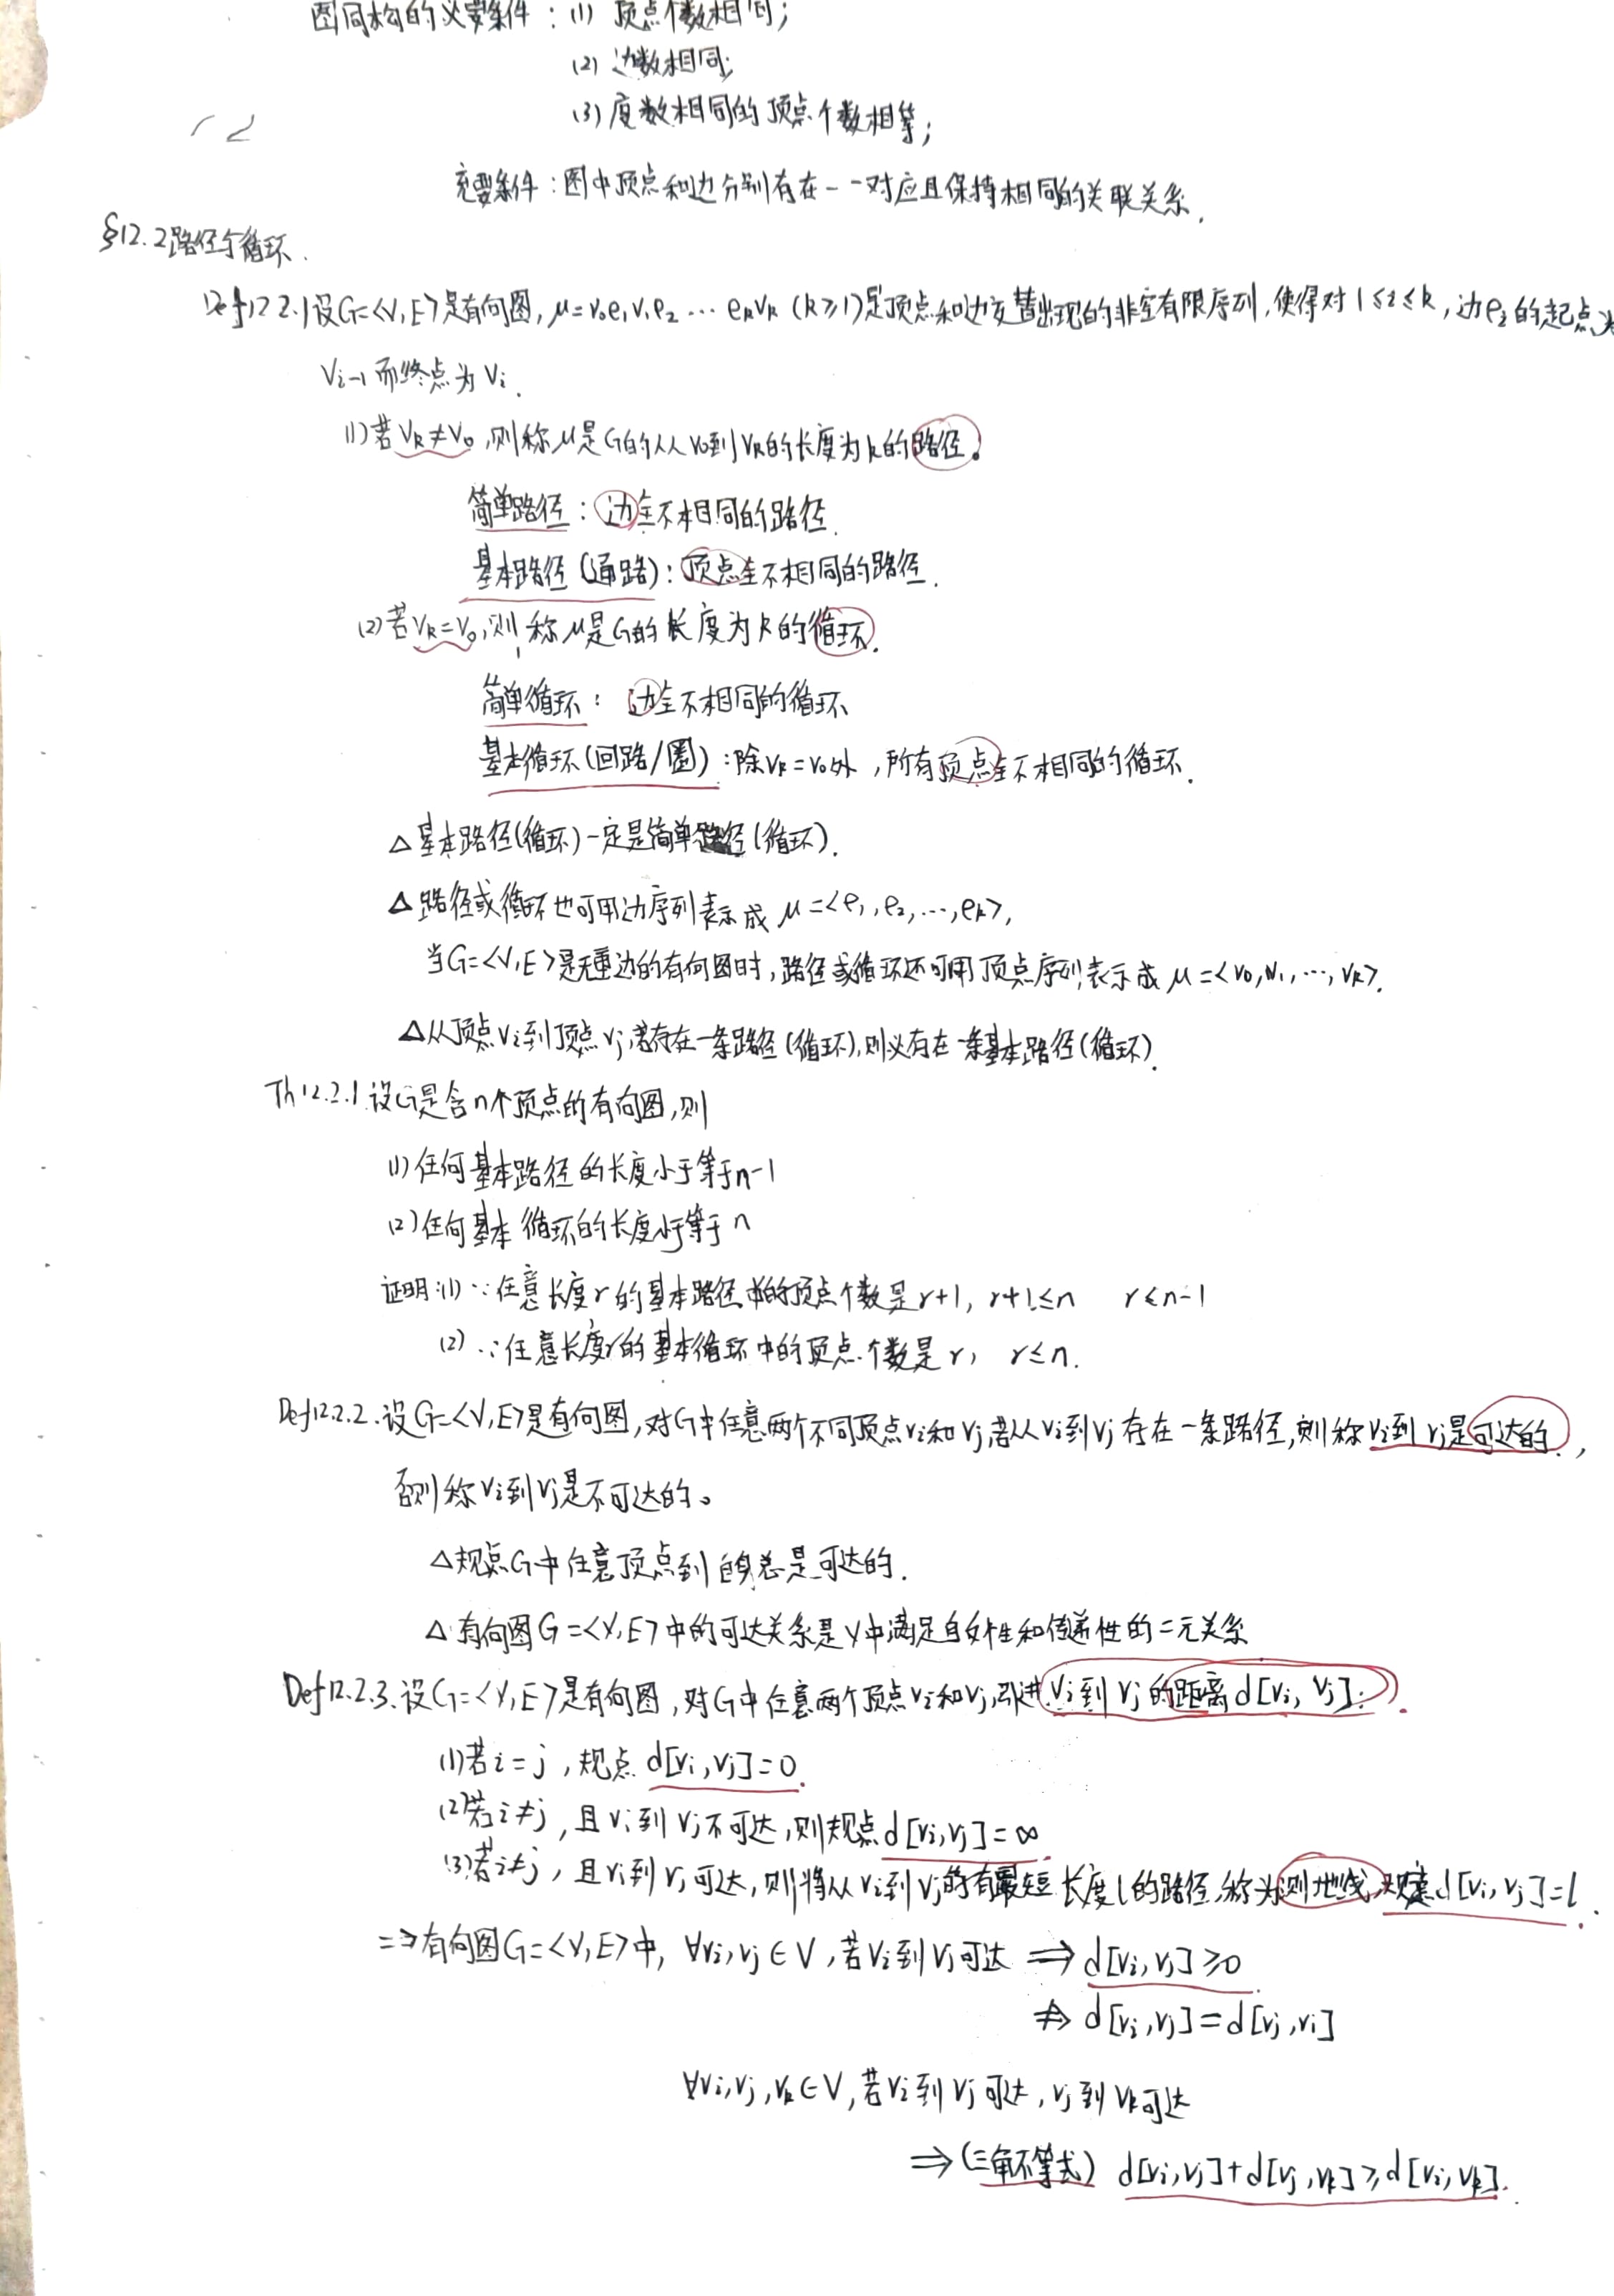 图同构的必要条件：(1) 顶点个数相同；
(2) 边数相同；
(3) 度数相同的顶点个数相等；
充要条件：图中顶点和边分别存在一一对应且保持相同的关联关系.
§12.2 路径与循环.
Def12.2.1 设G=<V,E>是有向图, μ=v₀e₁v₁e₂…eₖvₖ (k≥1)是顶点和边交替出现的非空有限序列,使得对1≤i≤k,边eᵢ的起点为
Vᵢ₋₁而终点为Vᵢ.
(1)若Vₖ≠V₀,则称μ是G的从v₀到vₖ的长度为k的路径。
简单路径：边全不相同的路径.
基本路径(通路)：顶点全不相同的路径.
(2)若Vₖ=V₀,则称μ是G的长度为k的循环.
简单循环：边全不相同的循环
基本循环(回路/圈)：除vₖ=v₀外,所有顶点全不相同的循环.
△基本路径(循环)一定是简单路径(循环).
△路径或循环也可用边序列表示成 μ=<e₁,e₂,…,eₖ>,
当G=<V,E>是无重边的有向图时,路径或循环还可用顶点序列表示成 μ=<v₀,v₁,…,vₖ>.
△从顶点vᵢ到顶点vⱼ若存在一条路径(循环),则必存在一条基本路径(循环).
Th12.2.1.设G是含n个顶点的有向图,则
(1)任何基本路径的长度小于等于n-1
(2)任何基本循环的长度小于等于n
证明:(1)∵任意长度r的基本路径中的顶点个数是r+1, r+1≤n r≤n-1
(2)∵任意长度r的基本循环中的顶点个数是r, r≤n.
Def12.2.2.设G=<V,E>是有向图,对G中任意两个不同顶点vᵢ和vⱼ,若从vᵢ到vⱼ存在一条路径,则称vᵢ到vⱼ是可达的,
否则称vᵢ到vⱼ是不可达的。
△规点G中任意顶点到自身总是可达的.
△有向图G=<V,E>中的可达关系是V中满足自反性和传递性的二元关系
Def12.2.3.设G=<V,E>是有向图,对G中任意两个顶点vᵢ和vⱼ,引进vᵢ到vⱼ的距离d[vᵢ,vⱼ]:
(1)若i=j,规点d[vᵢ,vⱼ]=0.
(2)若i≠j,且vᵢ到vⱼ不可达,则规点d[vᵢ,vⱼ]=∞.
(3)若i≠j,且vᵢ到vⱼ可达,则将从vᵢ到vⱼ的有最短长度l的路径,称为测地线,规定d[vᵢ,vⱼ]=l.
=>有向图G=<V,E>中, ∀vᵢ,vⱼ∈V,若vᵢ到vⱼ可达 ⟹ d[vᵢ,vⱼ]≥0
⇏ d[vᵢ,vⱼ]=d[vⱼ,vᵢ]
∀vᵢ,vⱼ,vₖ∈V,若vᵢ到vⱼ可达,vⱼ到vₖ可达
⟹(三角不等式) d[vᵢ,vⱼ]+d[vⱼ,vₖ]≥d[vᵢ,vₖ].